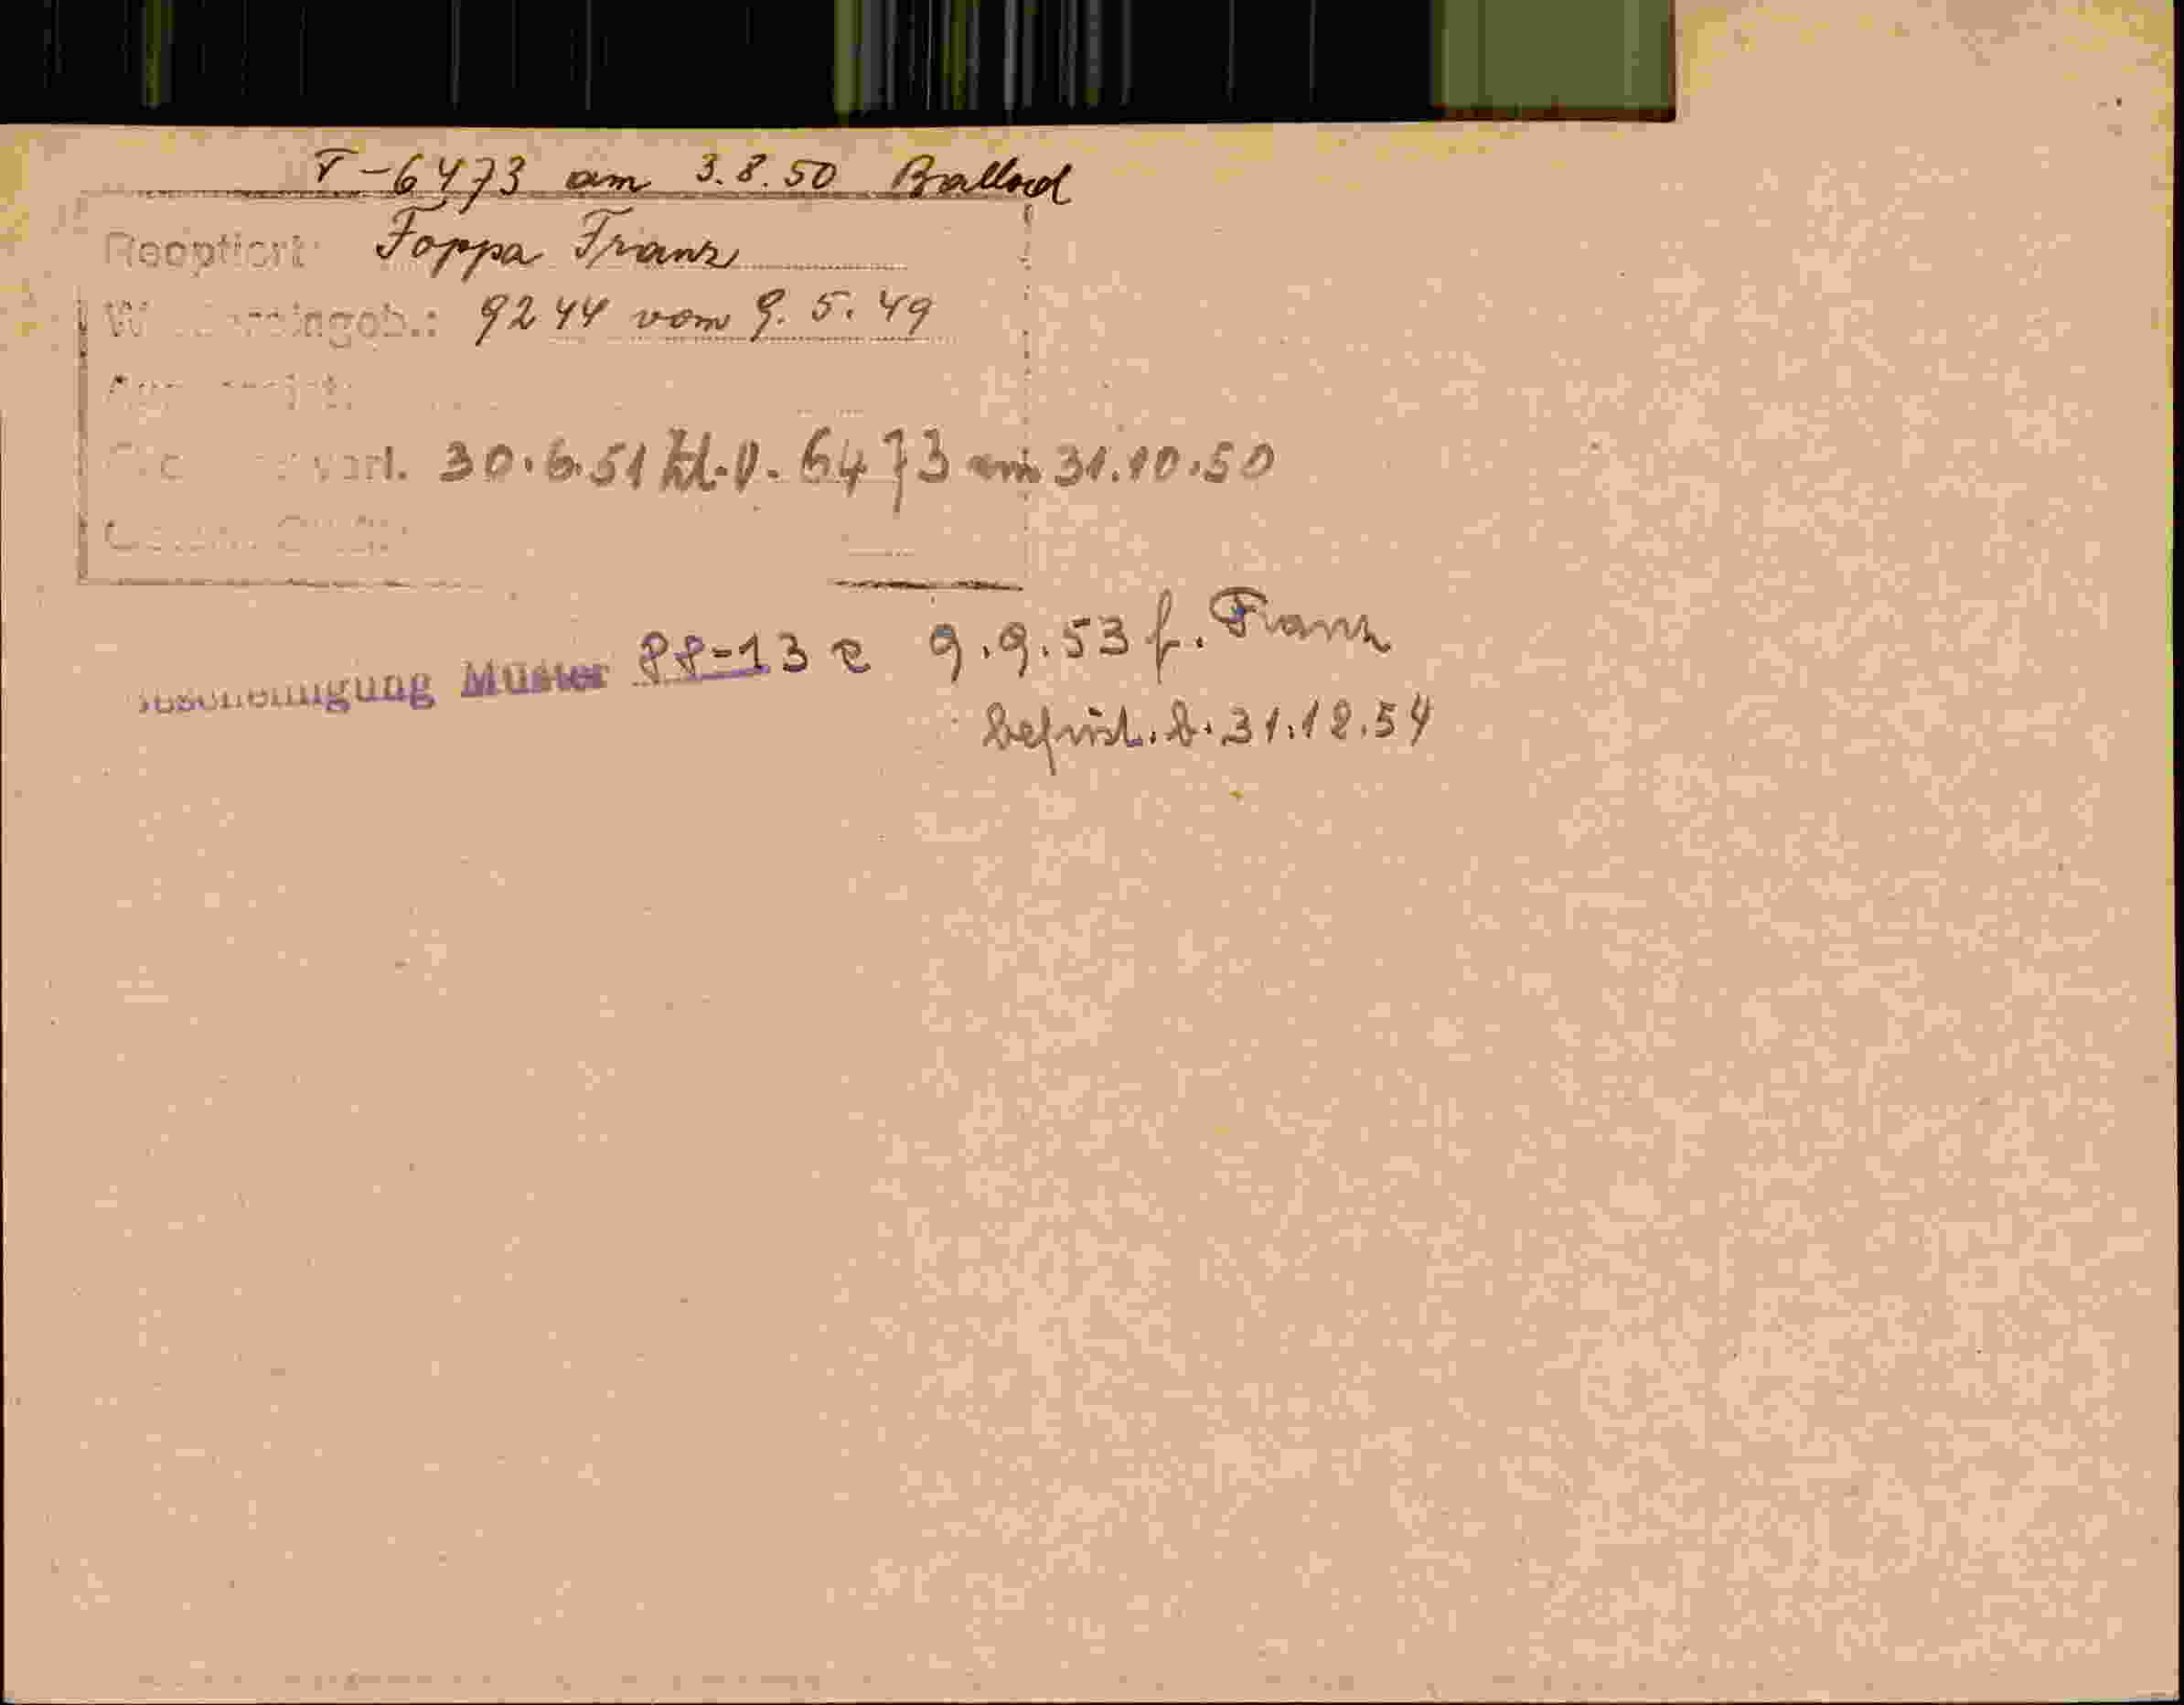 V-6473 am 3.8.50 Ballod
Reoptiert: Foppa Franz
9244 vom 9.5.49
verl. 30.6.51 Zl.V. 6473 am 31.10.50
Bescheinigung Muster 88-13 e 9.9.53 f. Franz
befrist. b. 31.12.54